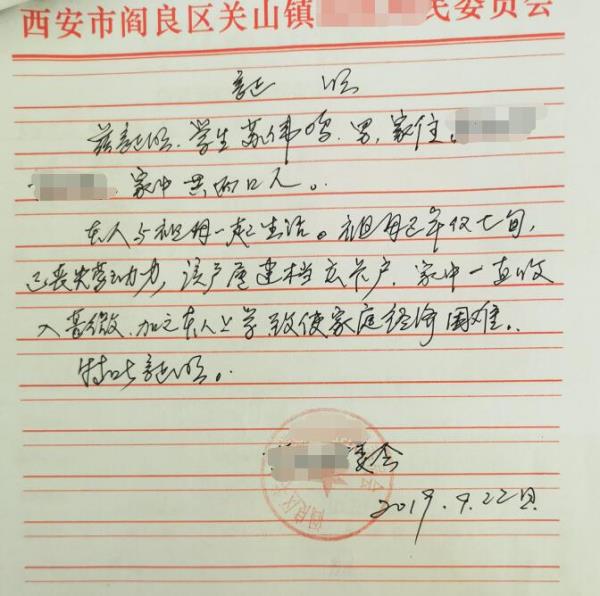 西安市阎良区关山镇 民委员会
证 明
兹证明,学生苏伟鸣,男,家住
家中共两口人。
本人与祖母一起生活。祖母已年仅七旬,
已丧失劳动力,该户属建档立卡户,家中一直收
入甚微,加之本人上学致使家庭经济困难。
特此证明。
委会
2019.9.22日
阎良区关